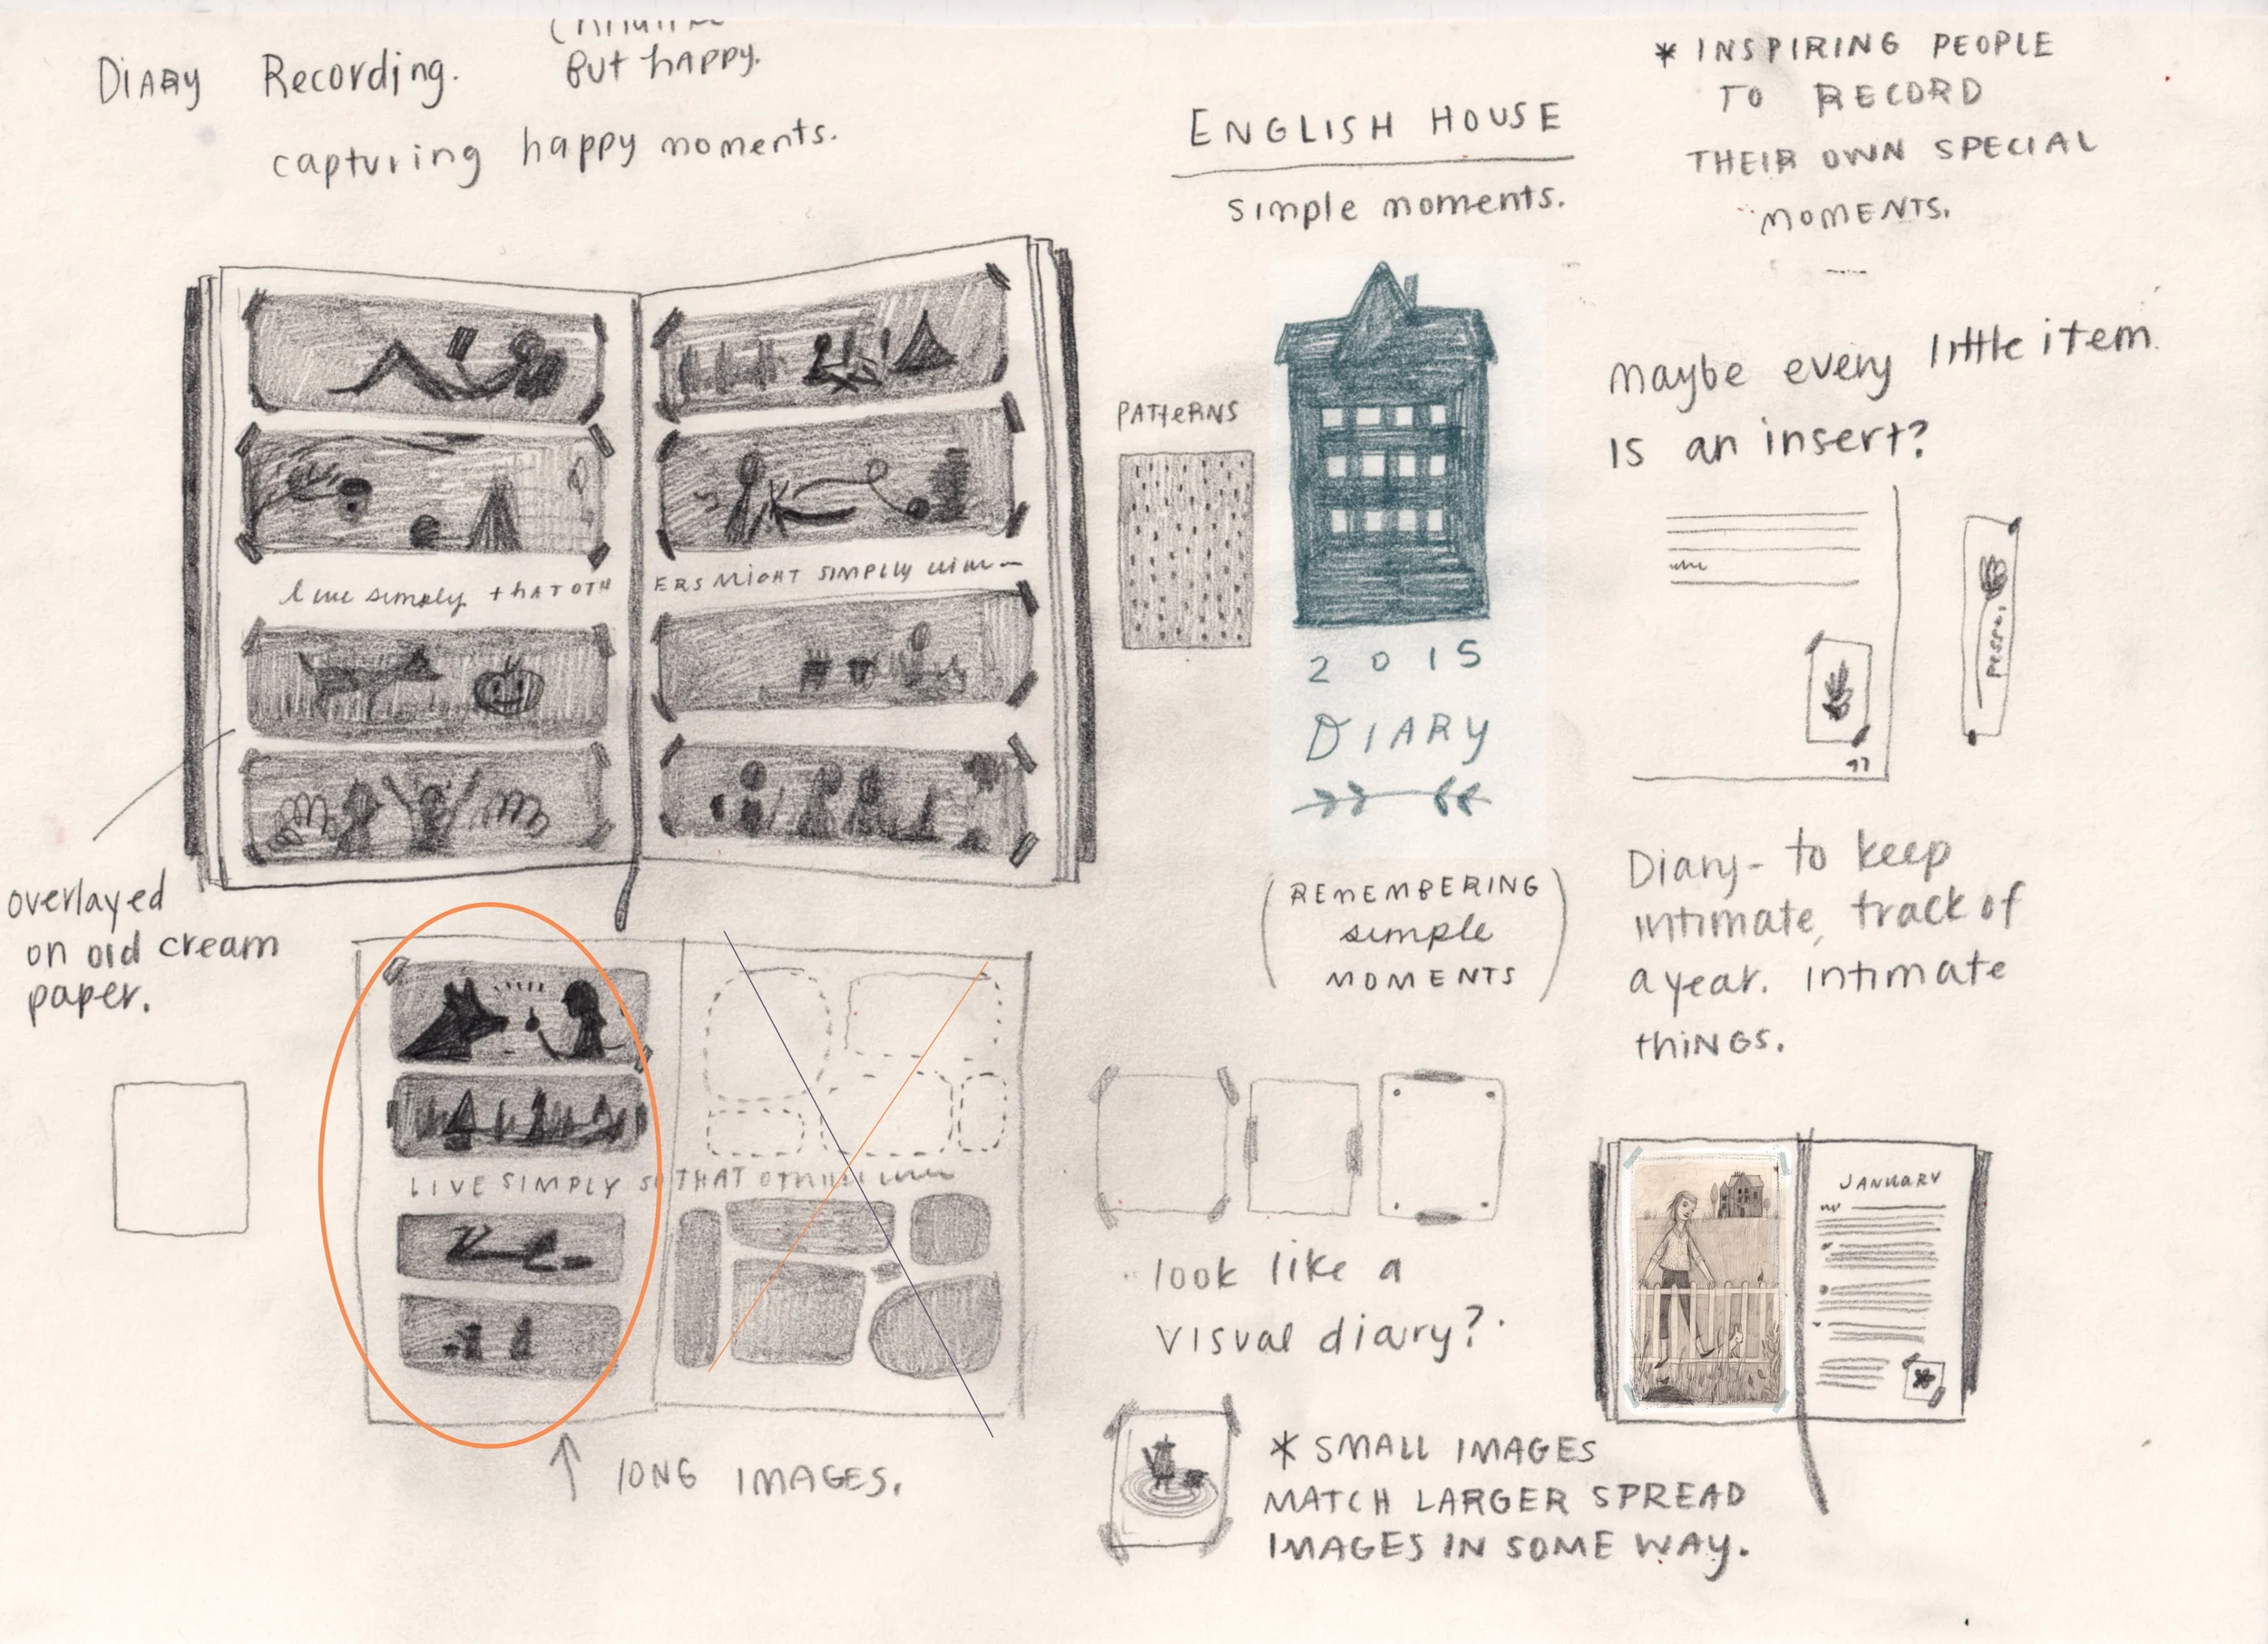 DIARY Recording.
But happy.
capturing happy moments.
ENGLISH HOUSE
simple moments.
* INSPIRING PEOPLE
TO RECORD
THEIR OWN SPECIAL
MOMENTS.
PATTeRNS
maybe every little item
is an insert?
live simply that OTH
ERS MIGHT SIMPLY
2015
DIARY
overlayed
on old cream
paper.
(REMEMBERING
simple
MOMENTS)
Diary - to keep
intimate, track of
a year. intimate
thiNGS.
LIVE SIMPLY SO THAT
LONG IMAGES.
look like a
visual diary?
JANUARY
* SMALL IMAGES
MATCH LARGER SPREAD
IMAGES IN SOME WAY.